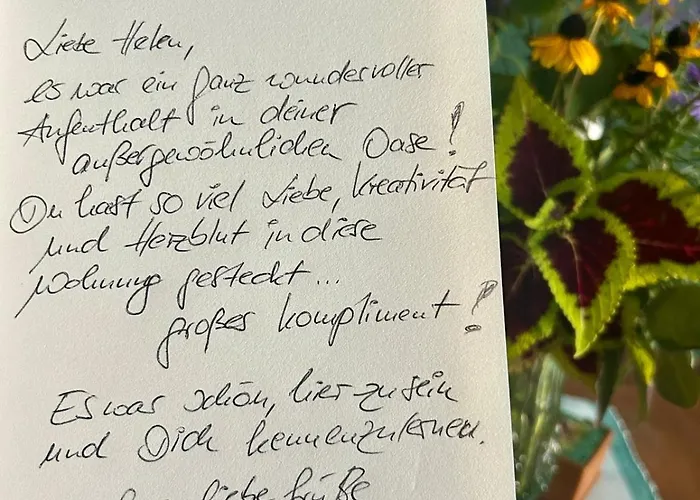 Liebe Helen,
es war ein ganz wundervoller
Aufenthalt in deiner
außergewöhnlichen Oase!
Du hast so viel Liebe, Kreativität
und Herzblut in diese
Wohnung gesteckt...
großes Kompliment!
Es war schön, hier zu sein
und Dich kennenzulernen.
liebe Grüße